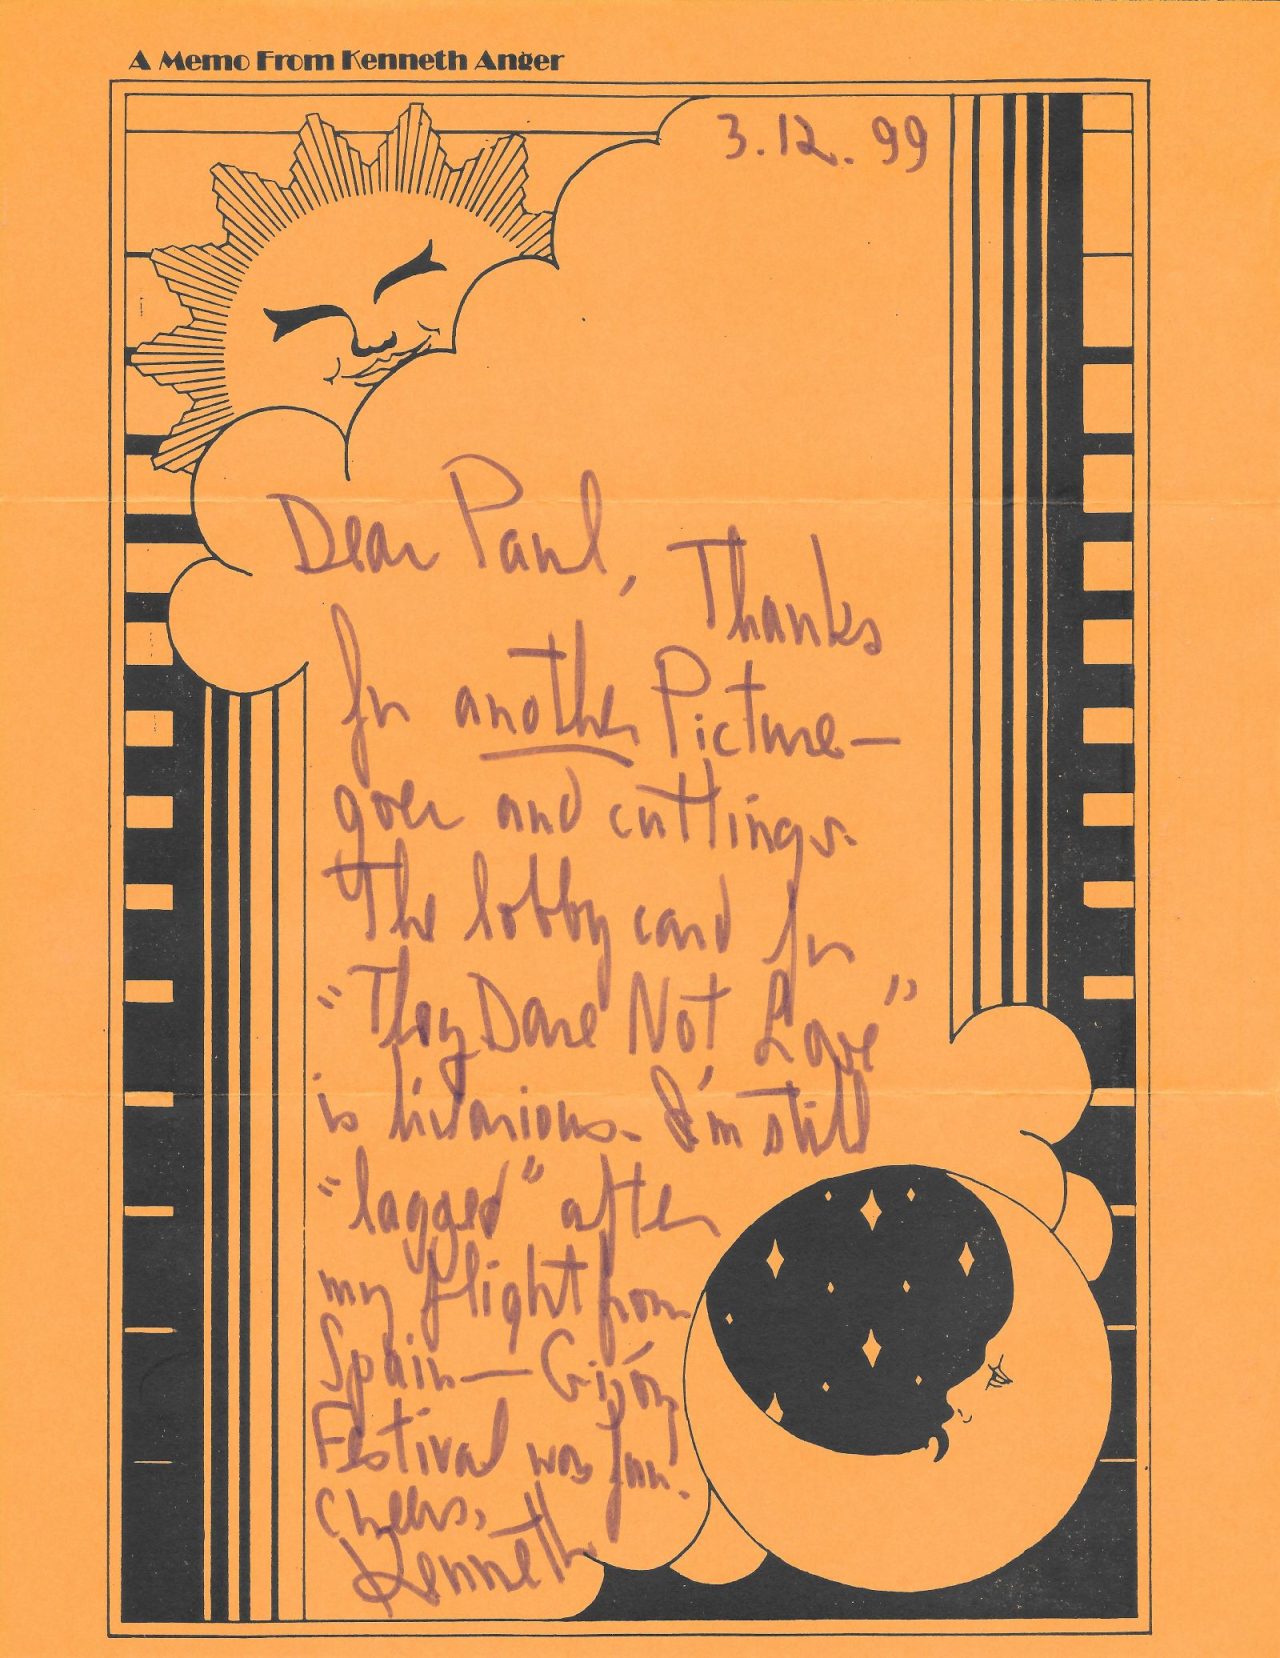 A Memo From Kenneth Anger
3.12.99
Dear Paul, Thanks
for another Picture-
goer and cuttings.
The lobby card for
"They Dare Not Love"
is hilarious. I'm still
"lagged" after
my flight from
Spain — Gijón
Festival was fun.
Cheers,
Kenneth